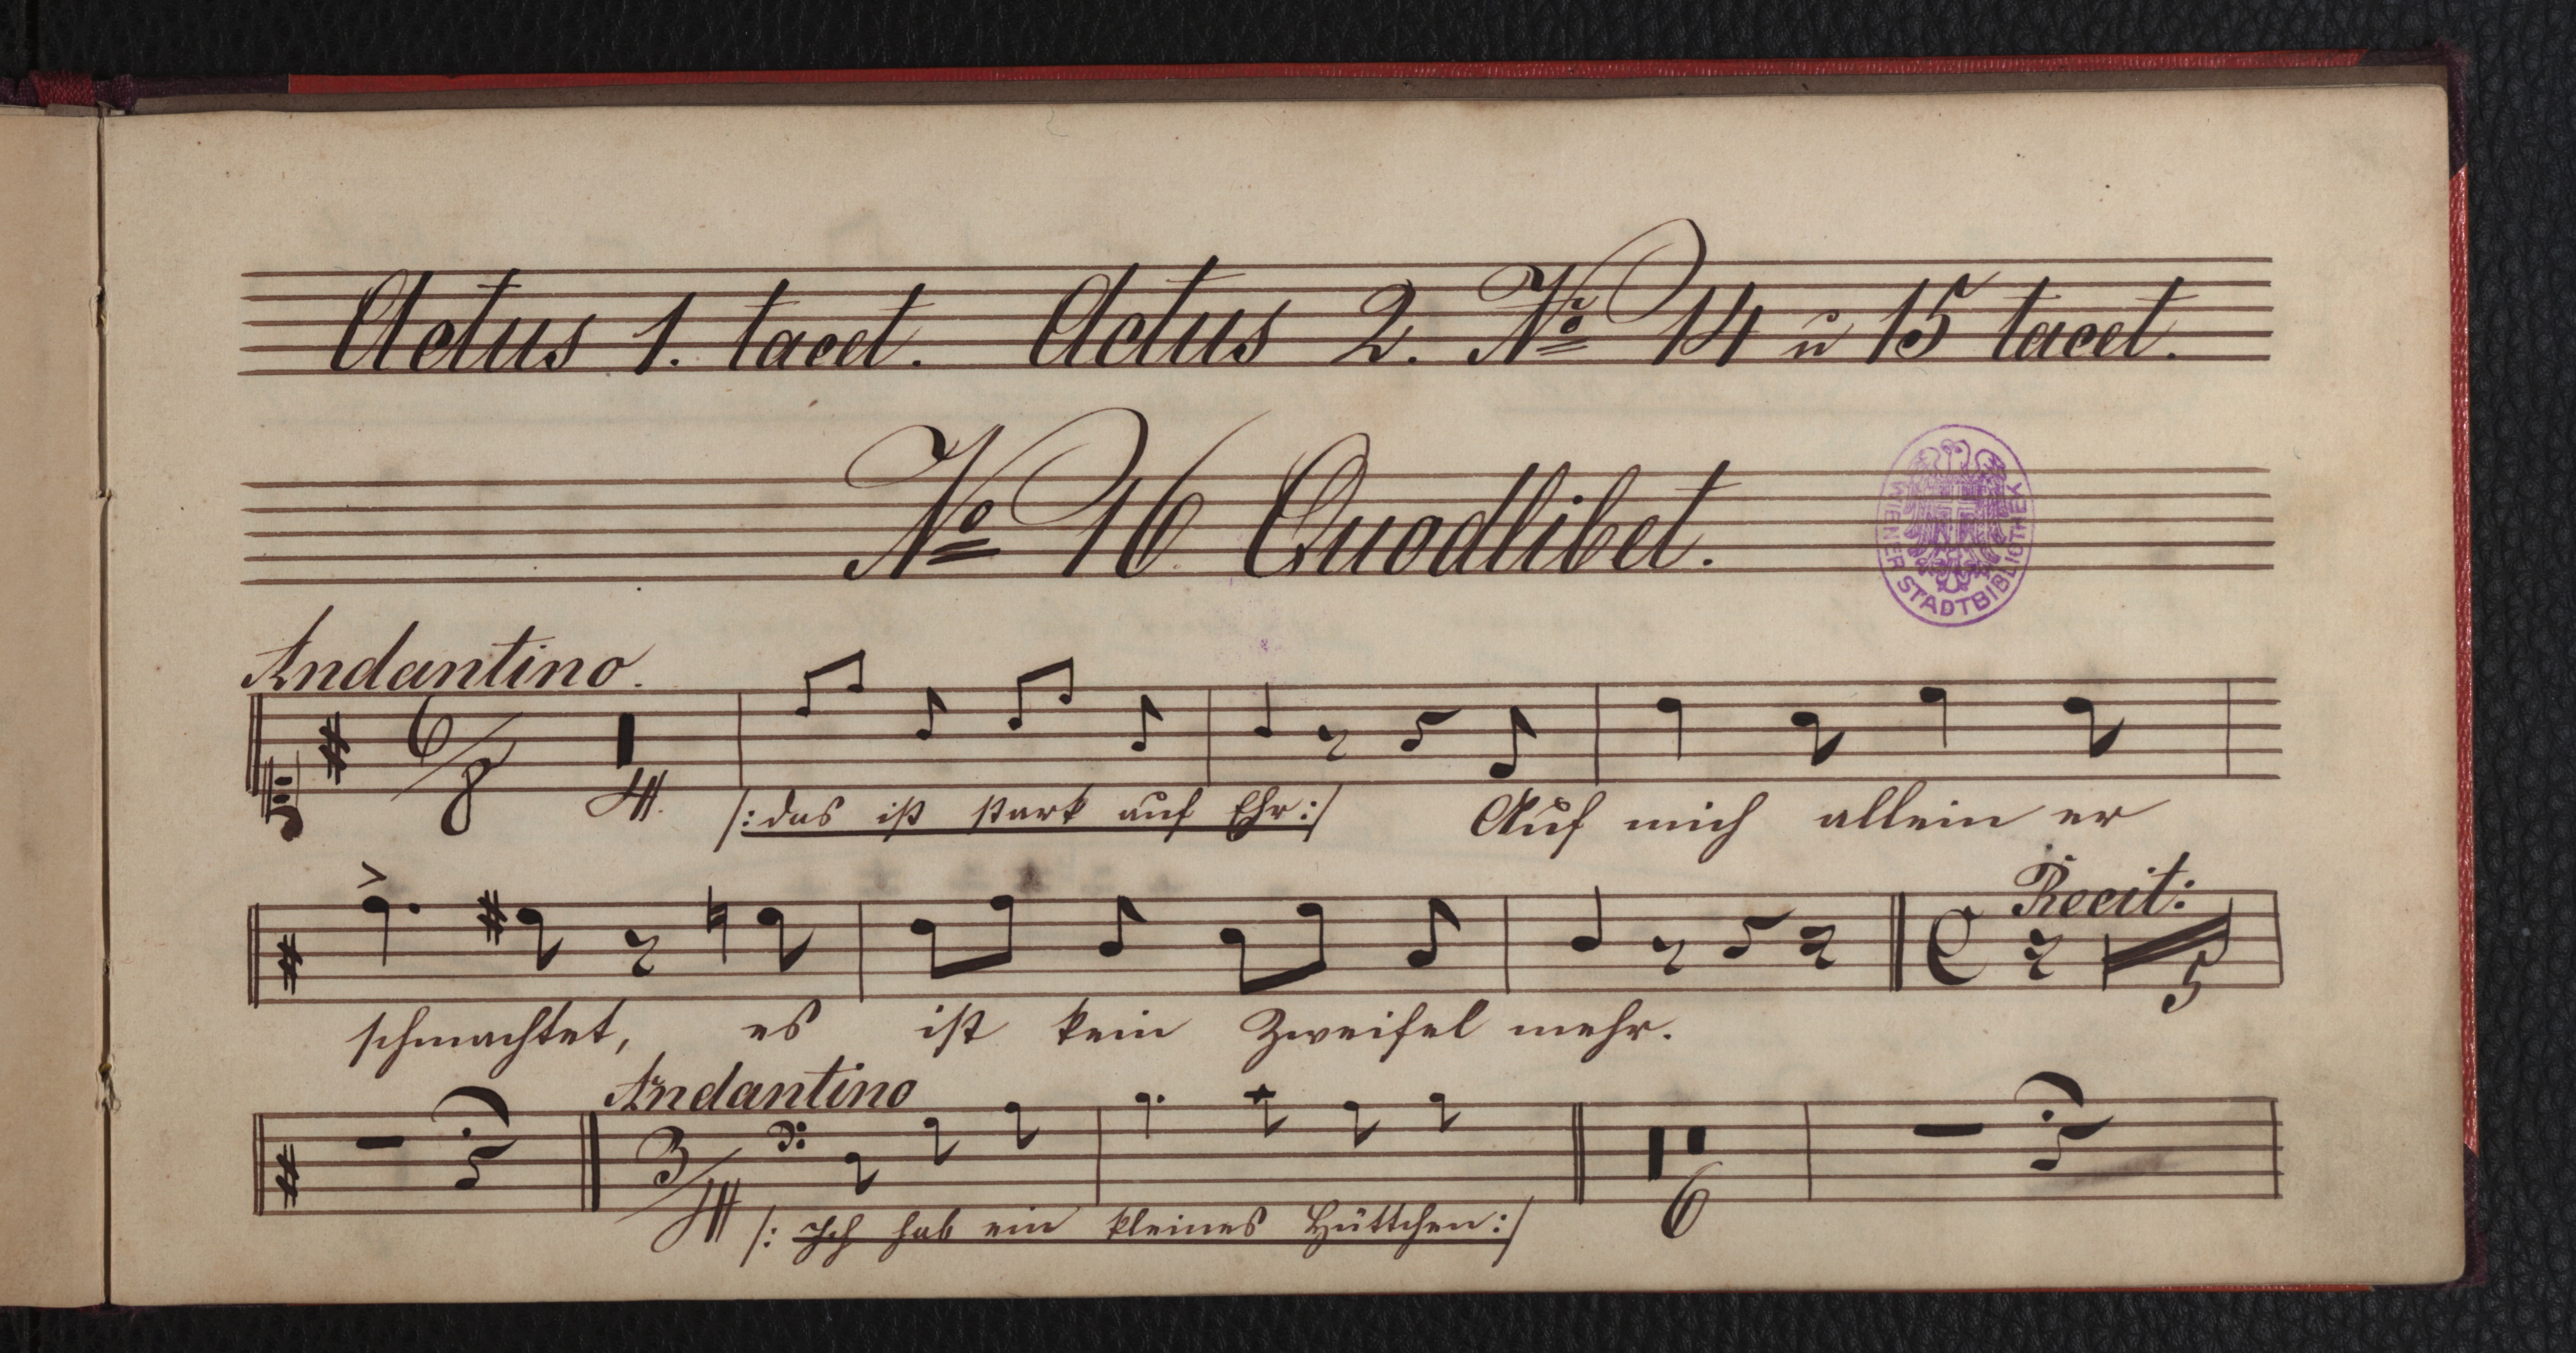 Actus 1. tacet. Actus 2. No 14 u 15 tacet.
No 16 Quodlibet.
WIENER STADTBIBLIOTHEK
Andantino.
6/8 4.
/: das ist stark auf Ehr :/ Auf mich allein er
Recit:
C 5
schmachtet, es ist kein Zweifel mehr.
Andantino
3/4 6
/: Ich hab ein kleines Hüttchen :/